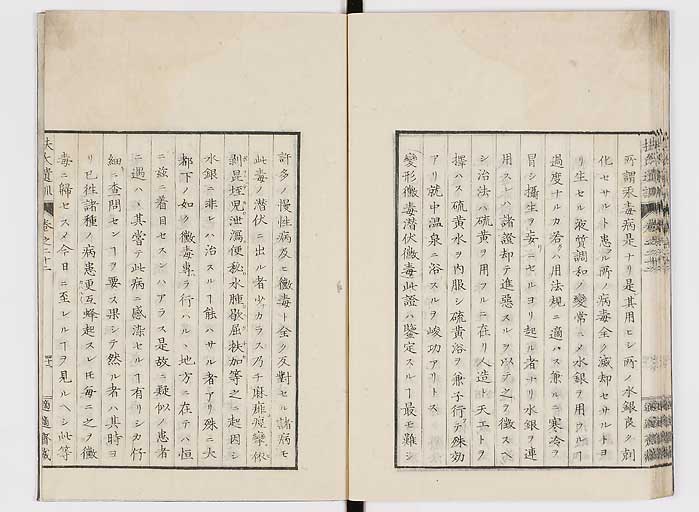 所謂汞毒病是ナリ是其用ヒシ所ノ水銀良ク刺
化セサルト患フル所ノ病毒全ク滅却セサルトヨ
リ生セル液質調和ノ變常ニノ水銀ヲ用フルヿ
過度ナルカ若クハ用法規ニ適ハス兼ルニ寒冷ヲ
冒シ攝生ヲ妄リニセルヨリ起ル者ナリ水銀ヲ連
用スレハ諸證却テ進惡スルヲ以テ之ヲ徴スヘ
シ治法ハ硫黄ヲ用フルニ在リ人造ト天工トヲ
擇ハス硫黄水ヲ内服シ硫黄浴ヲ兼子行テ殊効
アリ就中温泉ニ浴スルヲ峻功アリトス
變形黴毒潜伏黴毒此證ハ鑒定スルヿ最モ難シ
許多ノ慢性病及ヒ黴毒ト全ク反對セル諸病モ
此毒ノ潜伏ニ出ル者少カラス乃チ麻痺痙攣依
剥昆垤兒泄瀉便秘水腫歇屈扶加等之ニ起因シ
水銀ニ非レハ治スルヿ能ハサル者アリ殊ニ大
都下ノ如ク黴毒専ラ行ハルヽ地方ニ在テハ恒
ニ玆ニ着目セスンハアラス是故ニ疑似ノ患者
ニ遇ハヽ其嘗テ此病ニ感染セルヿ有リシカ仔
細ニ査問センヿヲ要ス果シテ然ル者ハ其時ヨ
リ已往諸種ノ病患更互蜂起スレ𪜈毎ニ之ヲ黴
毒ニ歸セスメ今日ニ至レルヿヲ見ルヘシ此等
扶氏遺訓
卷之二十二
適適齋藏